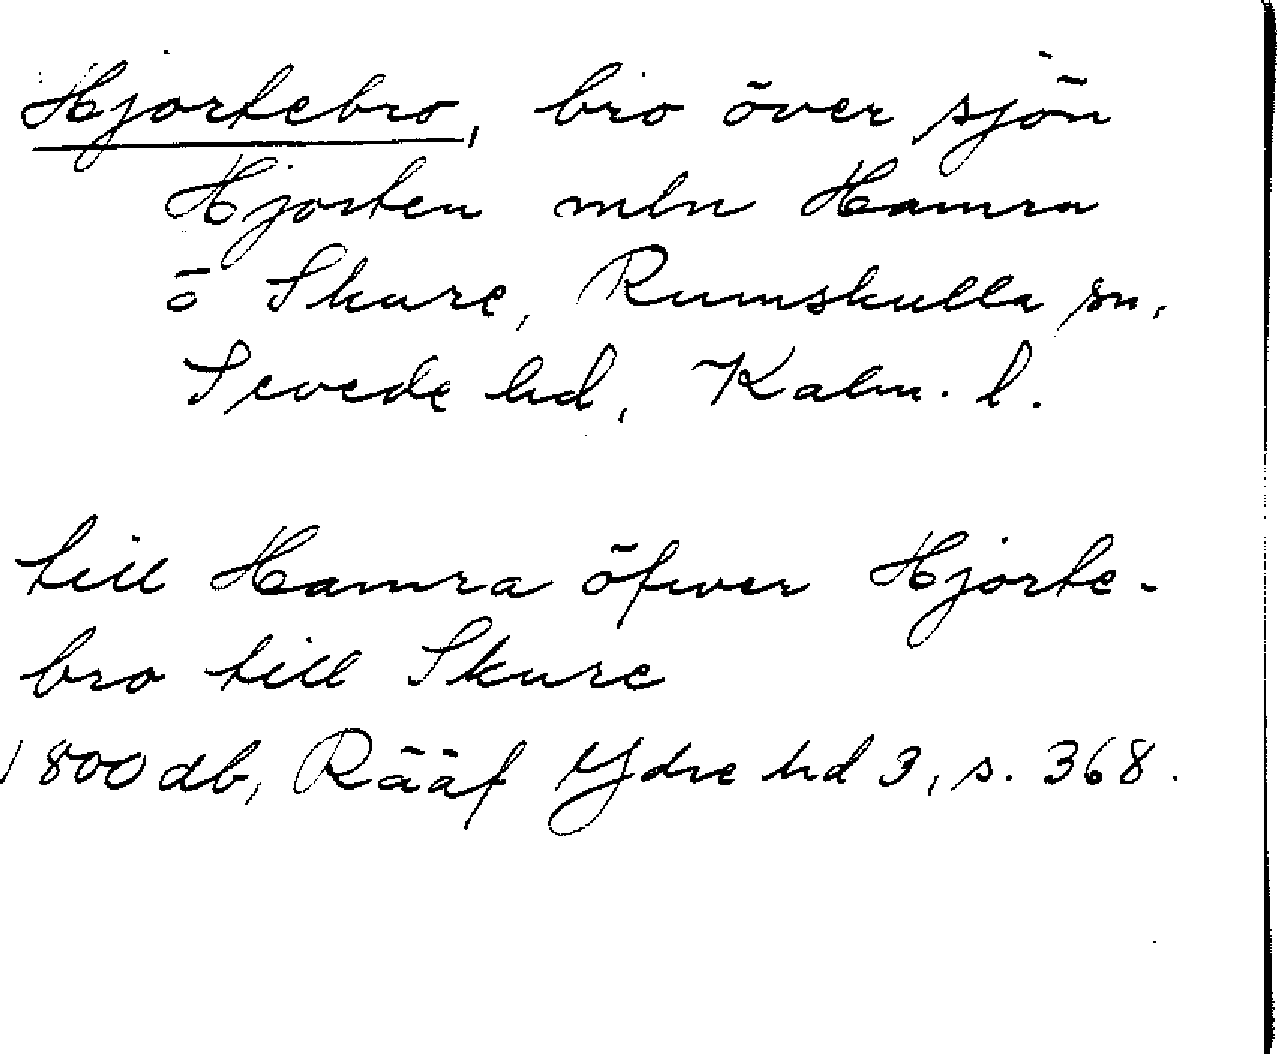 Hjortebro, bro över sjön
Hjorten mln Hamra
o Skure, Rumskulla sn,
Sevede hd, Kalm. l.
till Hamra öfwer Hjorte-
bro till Skure
1800 db, Rääf Ydre hd 3, s. 368.